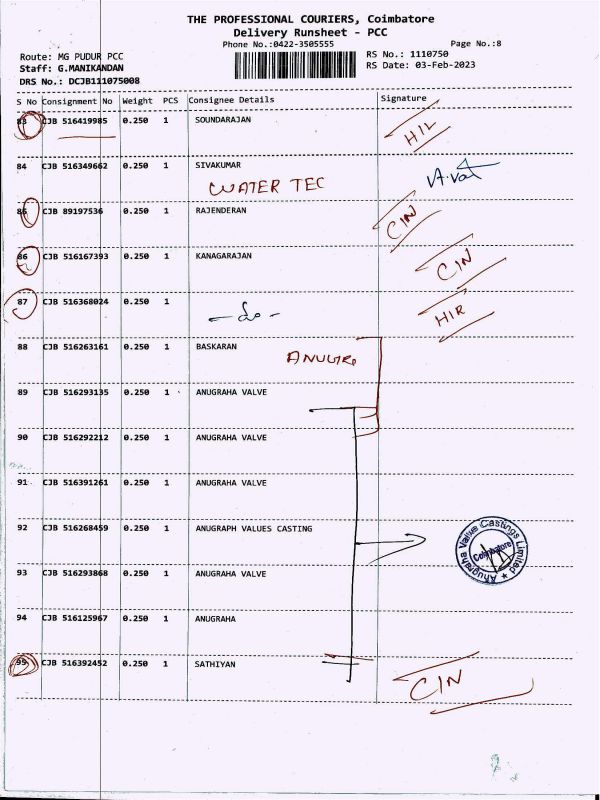 THE PROFESSIONAL COURIERS, Coimbatore
Delivery Runsheet - PCC
Phone No.:0422-3505555
Page No.:8
Route: MG PUDUR PCC
RS No.: 1110750
Staff: G.MANIKANDAN
RS Date: 03-Feb-2023
DRS No.: DCJB111075008
S No Consignment No Weight PCS Consignee Details Signature
83 CJB 516419985 0.250 1 SOUNDARAJAN
HIL
84 CJB 516349662 0.250 1 SIVAKUMAR
WATER TEC
85 CJB 89197536 0.250 1 RAJENDERAN CIN
86 CJB 516167393 0.250 1 KANAGARAJAN CIN
87 CJB 516368024 0.250 1
HIR
88 CJB 516263161 0.250 1 BASKARAN
89 CJB 516293135 0.250 1 ANUGRAHA VALVE
90 CJB 516292212 0.250 1 ANUGRAHA VALVE
91 CJB 516391261 0.250 1 ANUGRAHA VALVE
92 CJB 516268459 0.250 1 ANUGRAPH VALUES CASTING
Anugraha Valve Castings Limited
Coimbatore
93 CJB 516293868 0.250 1 ANUGRAHA VALVE
94 CJB 516125967 0.250 1 ANUGRAHA
95 CJB 516392452 0.250 1 SATHIYAN
CIN